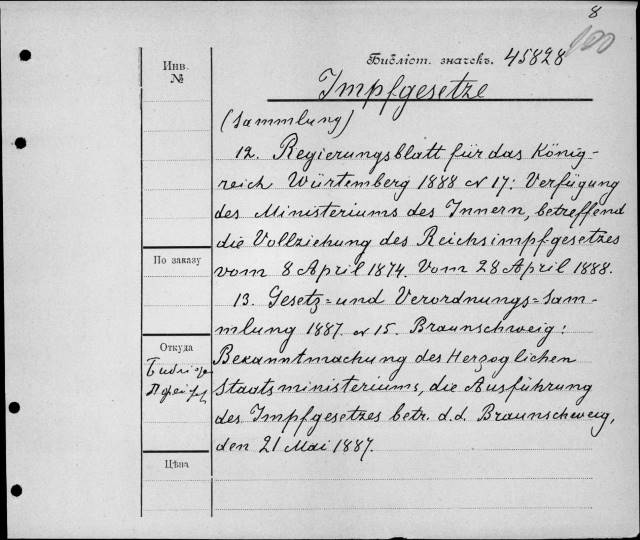 8
100
Инв.
№
Библіот. значекъ. 45828
Impfgesetze
(Sammlung)
12. Regierungsblatt für das König-
reich Würtemberg 1888 № 17: Verfügung
des Ministeriums des Innern, betreffend
die Vollziehung des Reichsimpfgesetzes
vom 8 April 1874. Vom 28 April 1888.
13. Gesetz= und Verordnungs=Sam-
mlung 1887. № 15. Braunschweig:
Bekanntmachung des Herzoglichen
Staatsministeriums, die Ausführung
des Impfgesetzes betr. d.d. Braunschweig,
den 21 Mai 1887.
По заказу
Откуда
Цѣна